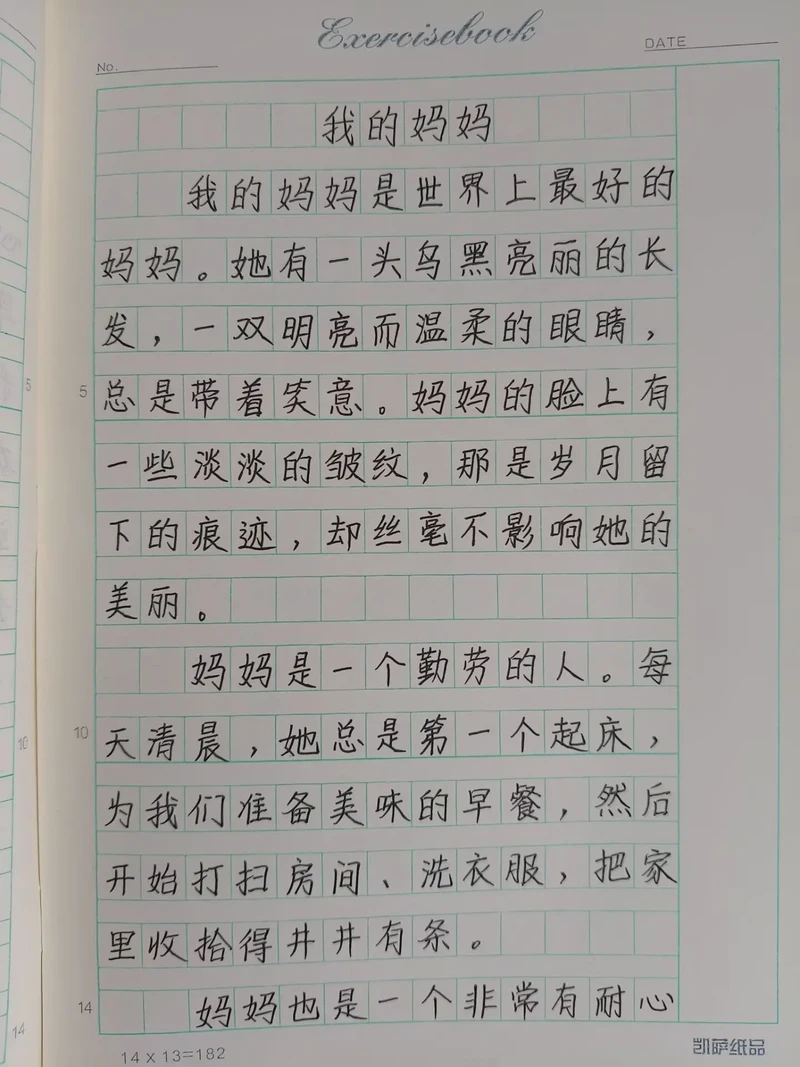 Exercisebook
No.
DATE
我的妈妈
我的妈妈是世界上最好的
妈妈。她有一头乌黑亮丽的长
发，一双明亮而温柔的眼睛，
5 总是带着笑意。妈妈的脸上有
一些淡淡的皱纹，那是岁月留
下的痕迹，却丝毫不影响她的
美丽。
妈妈是一个勤劳的人。每
10 天清晨，她总是第一个起床，
为我们准备美味的早餐，然后
开始打扫房间、洗衣服，把家
里收拾得井井有条。
14 妈妈也是一个非常有耐心
14 x 13=182
凯萨纸品
5
10
14